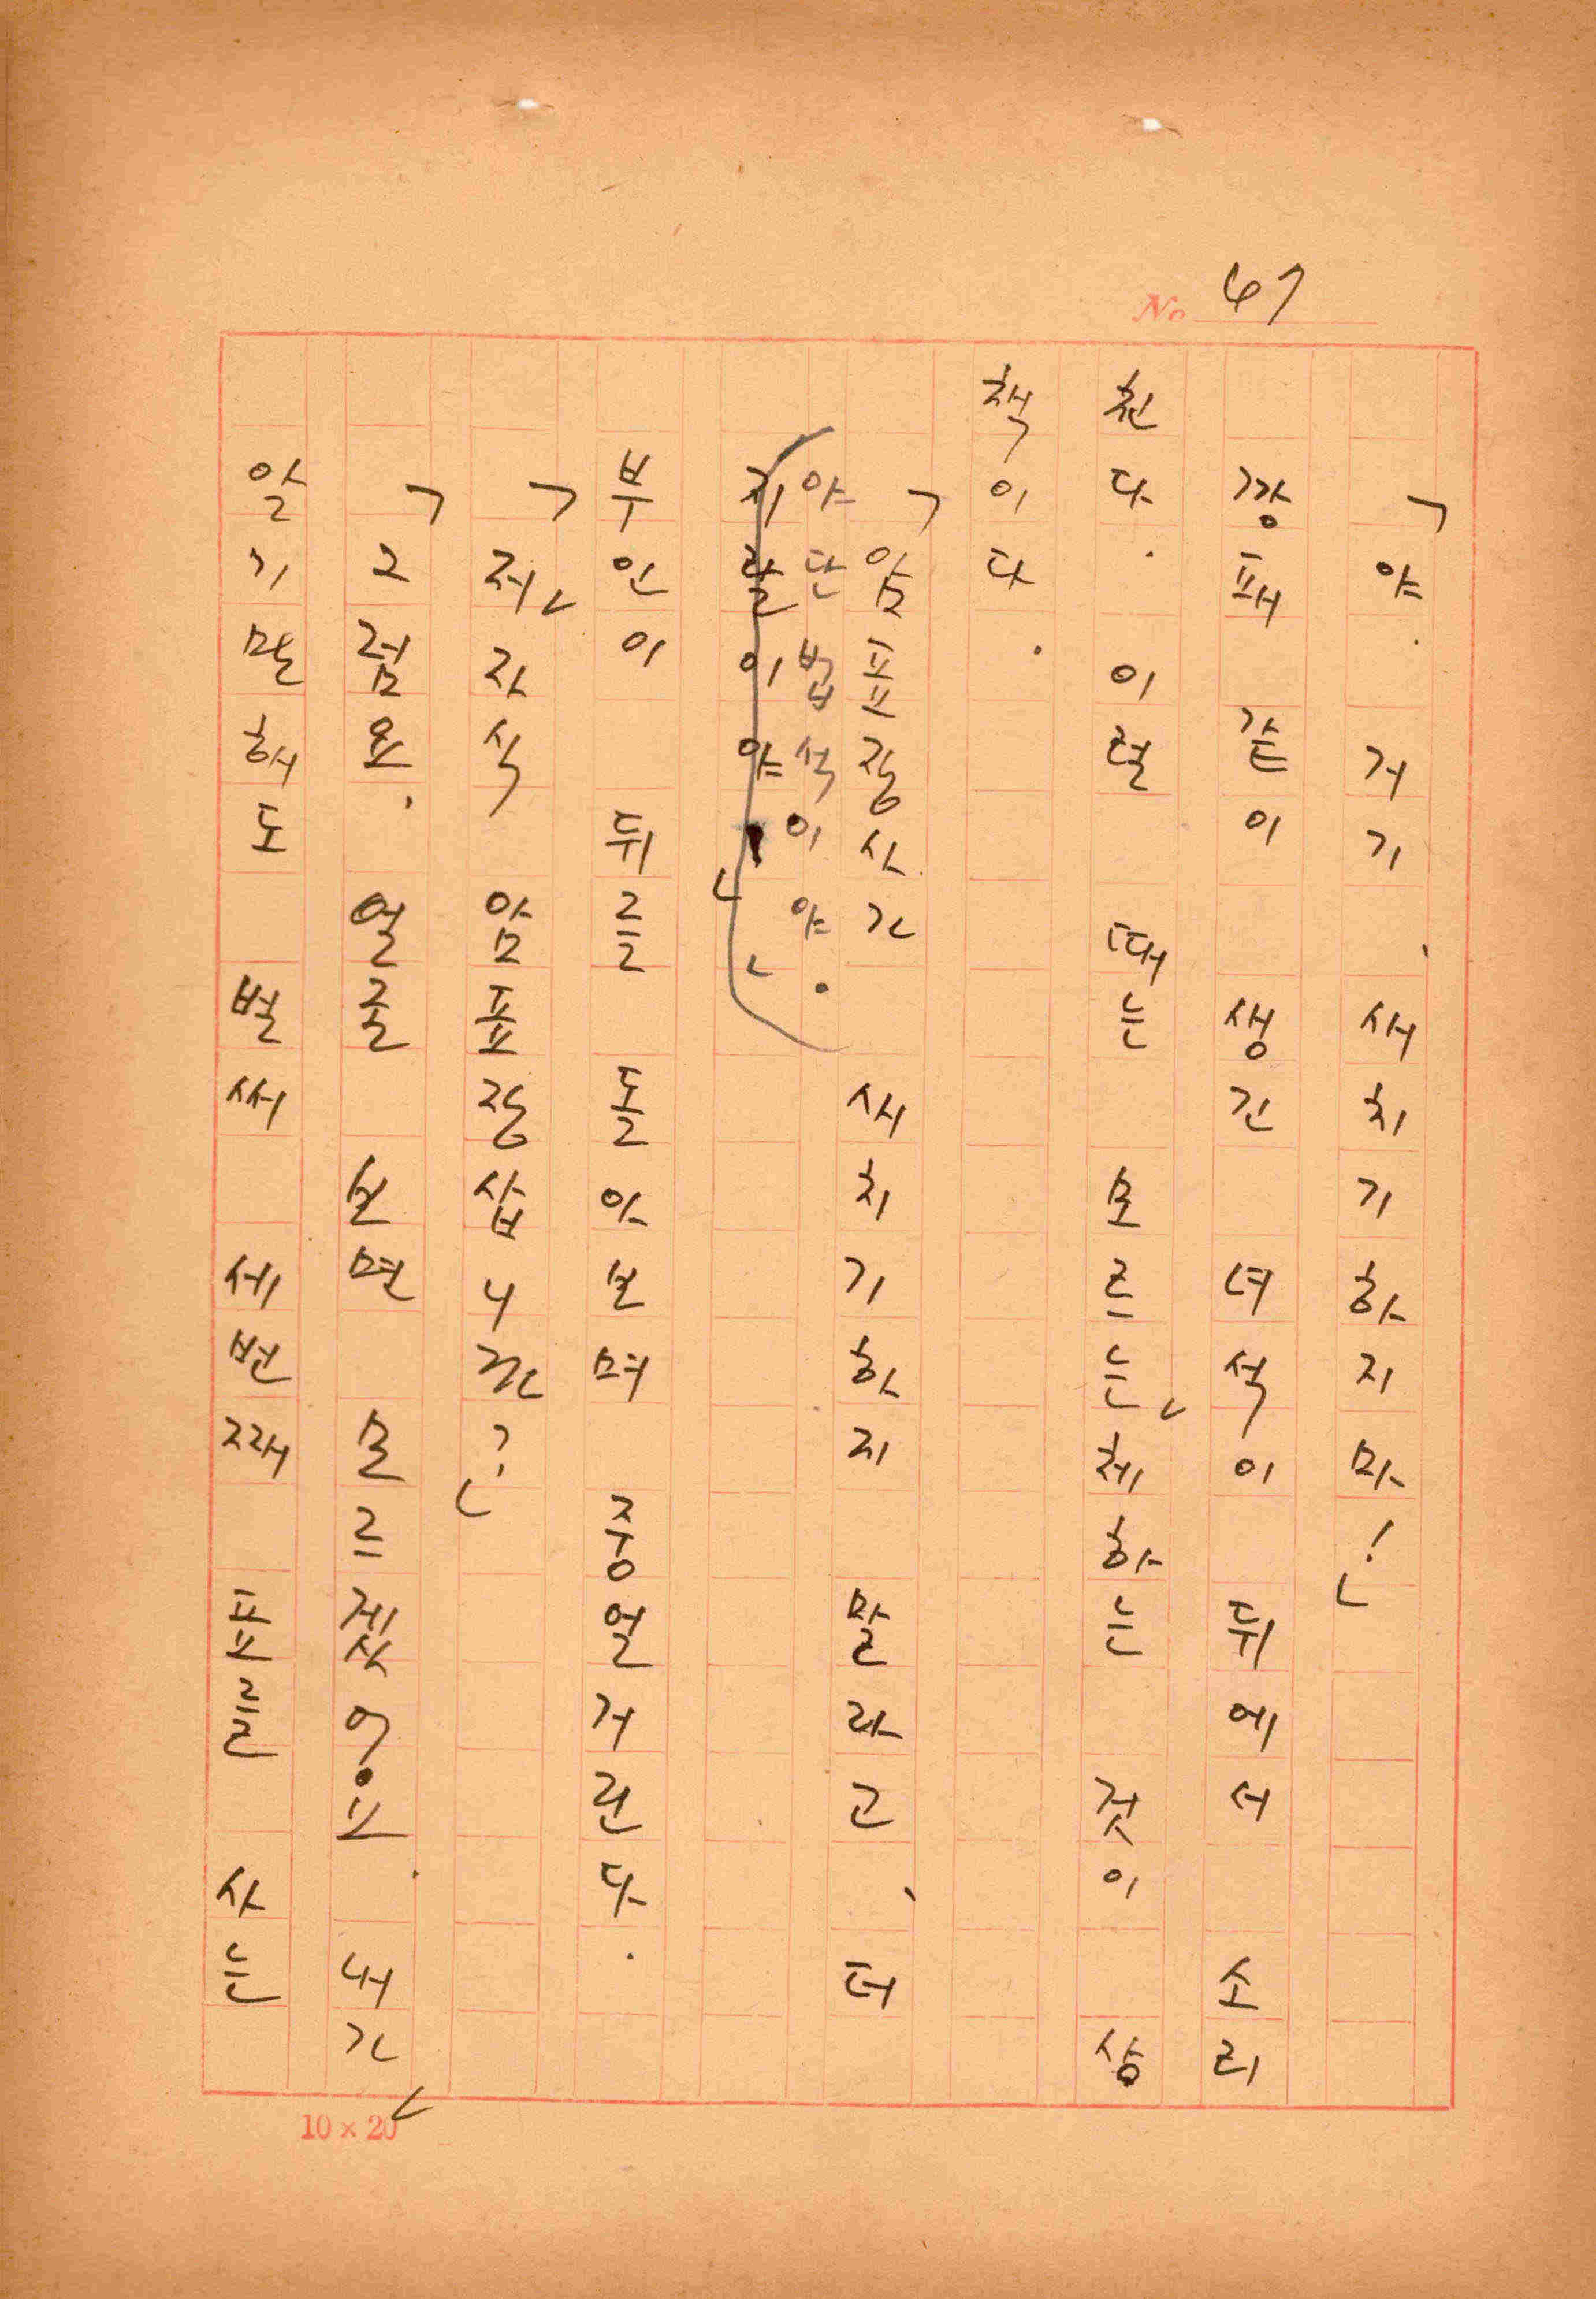 No 67
「야. 거기、새치기하지마!」
깡패 같이 생긴 녀석이 뒤에서 소리
친다. 이럴 때는 모르는 체하는 것이 상
책이다.
「암표장사가 새치기하지 말라고、더
야단법석이야.」
지랄이야」
부인이 뒤를 돌아보며 중얼거린다.
「저 자식 암표장삽니까?」
「그럼요. 얼굴 보면 모르겠어요. 내가
알기만해도 벌써 세번째 표를 사는
10×20